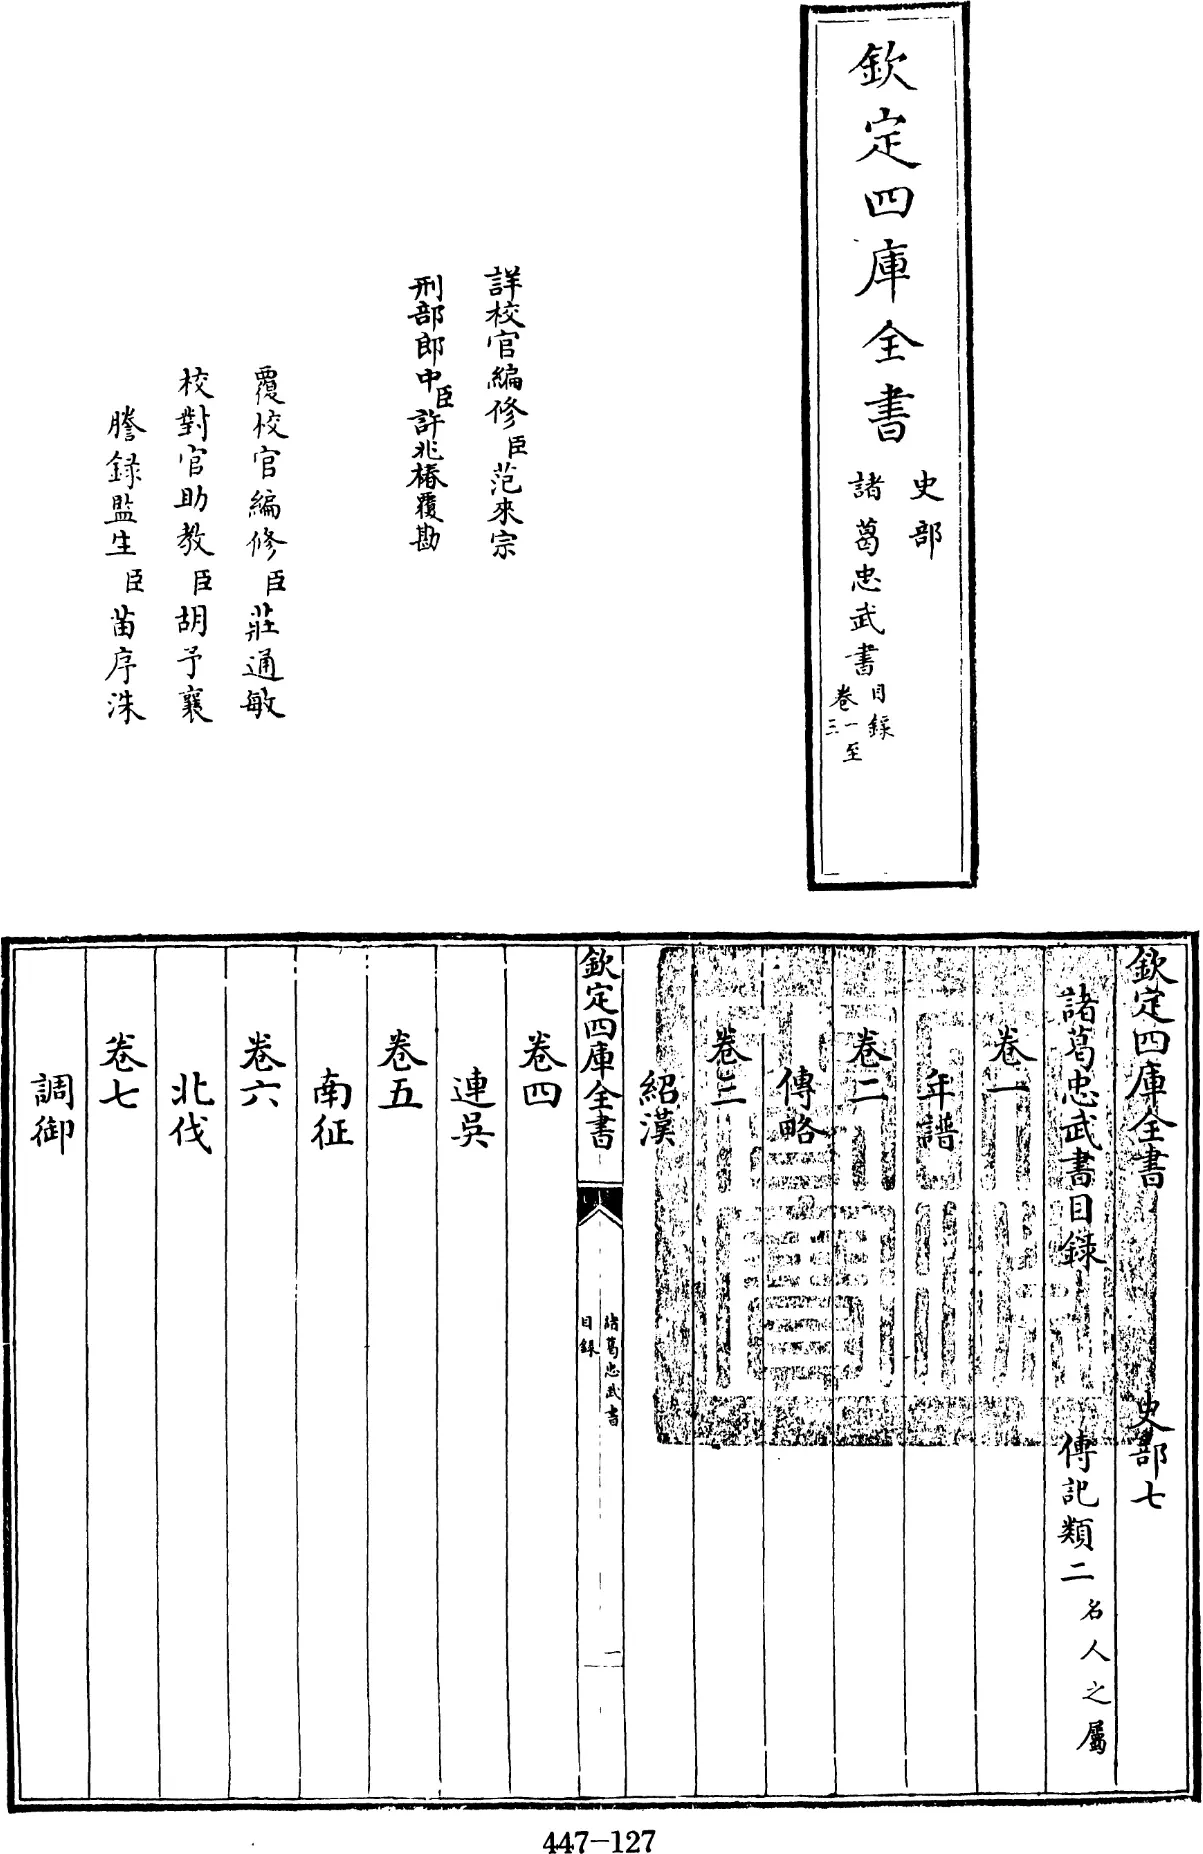 欽定四庫全書
史部
諸葛忠武書
目錄
卷一至
三
詳校官編修臣范來宗
刑部郎中臣許兆椿覆勘
覆校官編修臣莊通敏
校對官助教臣胡予襄
謄録監生臣苗序洙
欽定四庫全書 史部七
諸葛忠武書目録 傳記類二 名人之屬
卷一
年譜
卷二
傳略
卷三
紹漢
欽定四庫全書
諸葛忠武書
目録
一
卷四
連吳
卷五
南征
卷六
北伐
卷七
調御
447-127